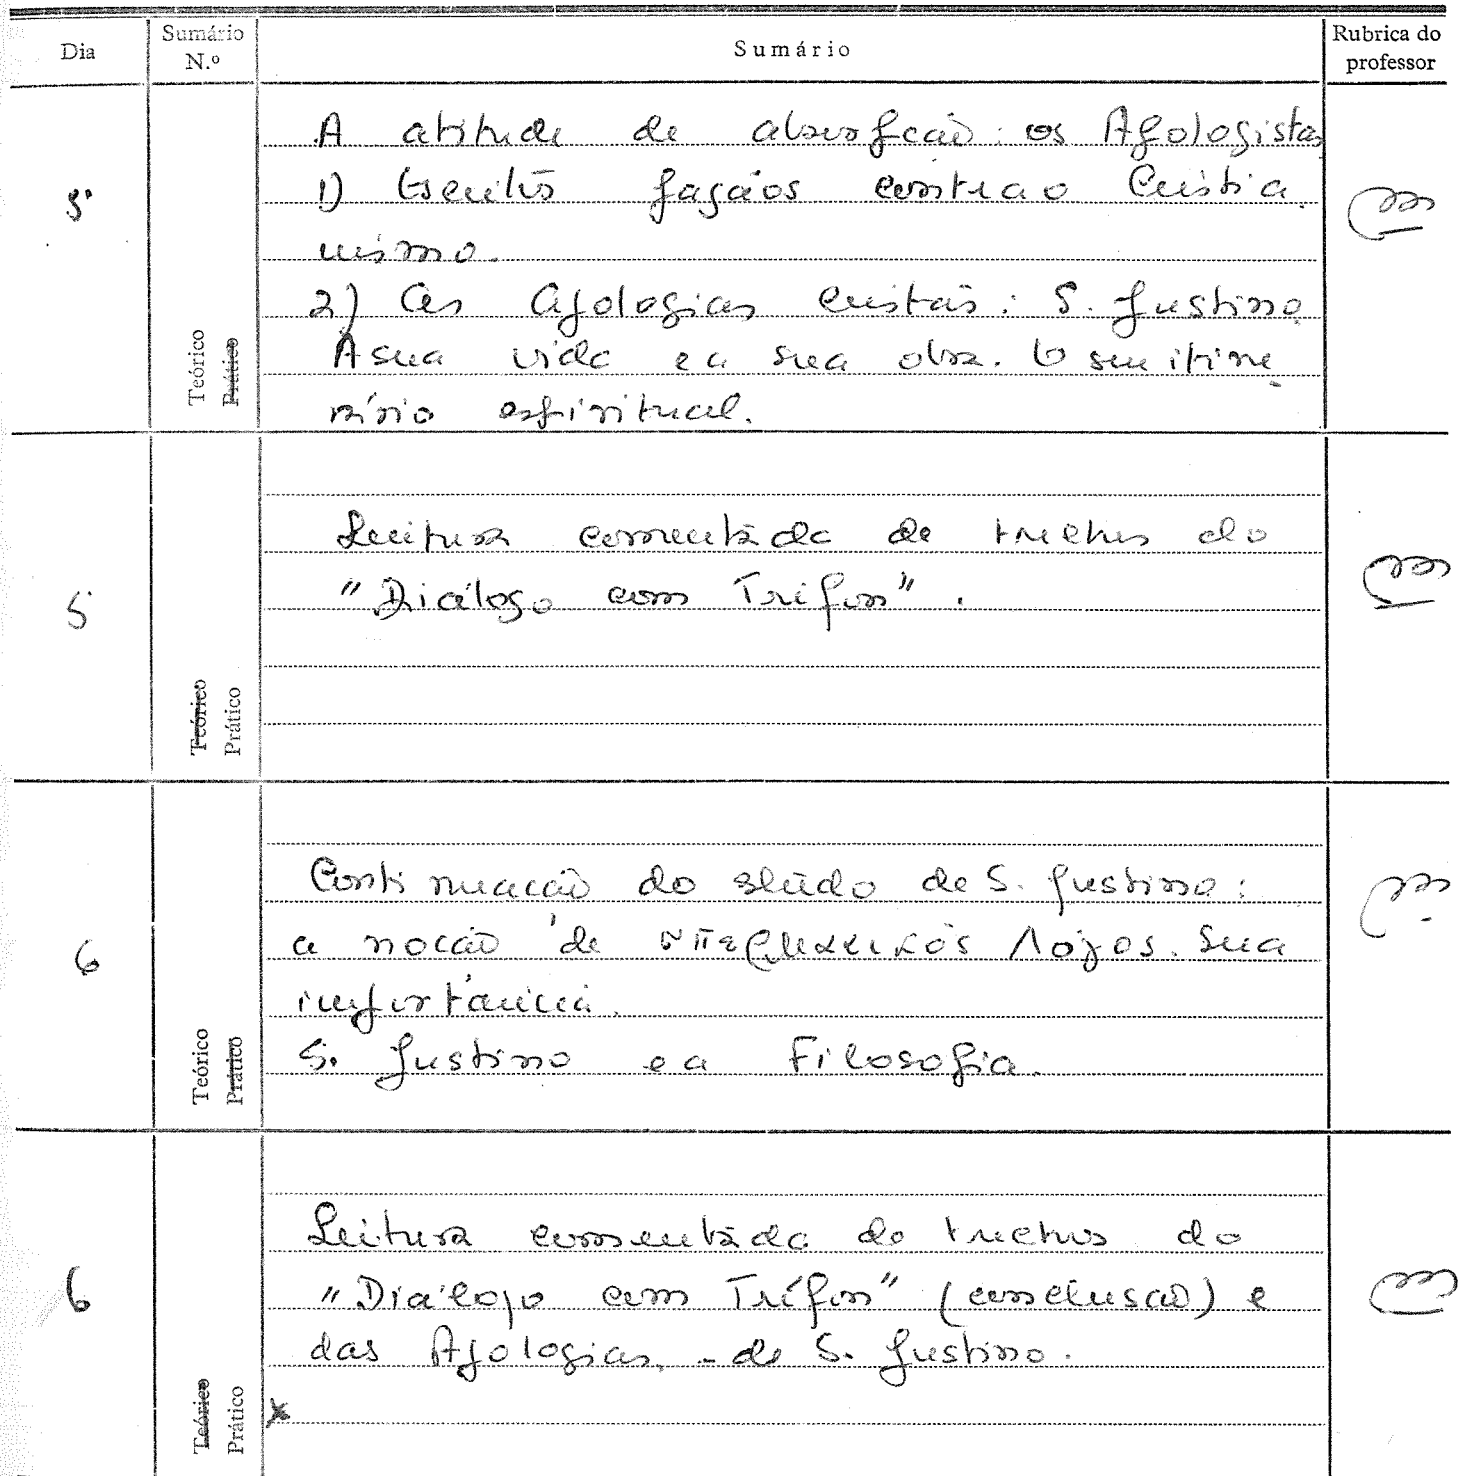 Dia Sumário N.º Sumário Rubrica do professor
5
Teórico Prático
A atitude de absorpção: os Apologistas
1) Escritos pagãos contra o Cristia
nismo.
2) As Apologias cristãs: S. Justino
A sua vida e a sua obra. O seu itine
rário espiritual.
5
Teórico Prático
Leitura comentada de trechos do
"Diálogo com Trifon".
6
Teórico Prático
Continuação do estudo de S. Justino:
a noção de Λόγos. Sua
importância.
S. Justino e a Filosofia.
6
Teórico Prático
Leitura comentada de trechos do
"Diálogo com Trífon" (conclusão) e
das Apologias, - de S. Justino.
x